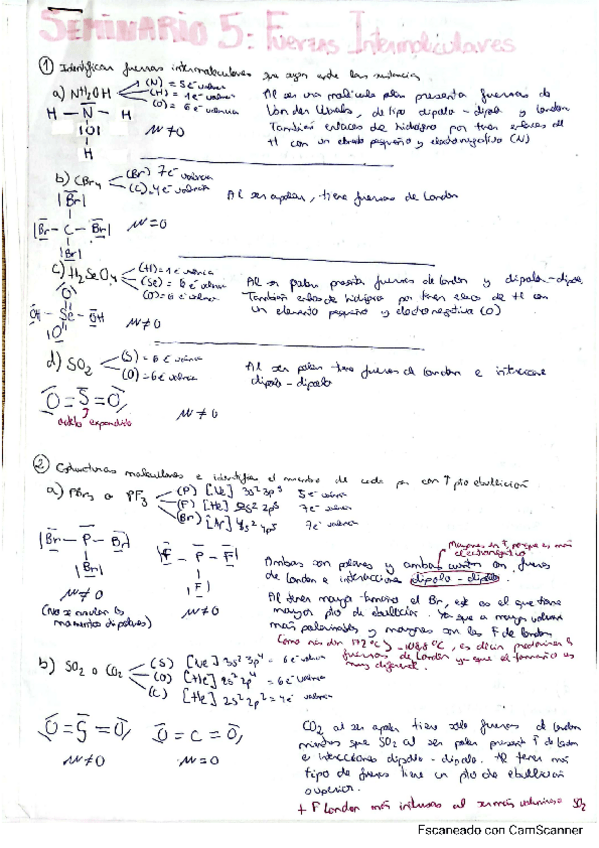 SEMINARIO 5: Fuerzas Intermoleculares
① Identifican fuerzas intermoleculares que sigen cada las sustancias
a) NH₂OH (N) = 5 e⁻ valencia
(H) = 1 e⁻ valencia
(O) = 6 e⁻ valencia
Al ser una molécula polar presenta fuerzas de
Van der Waals, de tipo dipolo - dipolo y London
También enlaces de hidrógeno por tener enlaces de
H con un elemento pequeño y electronegativo (N)
H — N — H
|O|
H
μ ≠ 0
b) CBr₄ (Br) 7 e⁻ valencia
(C) = 4 e⁻ valencia
Al ser apolar, tiene fuerzas de London
|Br|
|Br — C — Br|
|Br|
μ = 0
c) H₂SeO₄ (H) = 1 e⁻ valencia
(Se) = 6 e⁻ valencia
(O) = 6 e⁻ valencia
Al ser polar presenta fuerzas de London y dipolo - dipolo.
También enlace de hidrógeno por tener enlace de H con
un elemento pequeño y electronegativo (O)
O
OH — Se — OH
O
μ ≠ 0
d) SO₂ (S) = 6 e⁻ valencia
(O) = 6 e⁻ valencia
Al ser polar tiene fuerzas de London e interacciones
dipolo - dipolo
O = S = O
octeto expandido
μ ≠ 0
② Estructuras moleculares e identifica el miembro de cada par con ↑ pto ebullición
a) PBr₃ o PF₃ (P) [Ne] 3s² 3p³ 5 e⁻ valencia
(F) [He] 2s² 2p⁵ 7 e⁻ valencia
(Br) [Ar] 4s² 4p⁵ 7 e⁻ valencia
Mayores en F, porque es más
electronegativo
|Br — P — Br|
|Br|
|F — P — F|
|F|
Ambas son polares y ambas cuentan con fuerzas
de London e interacciones dipolo - dipolo.
μ ≠ 0
(No se anulan los
momentos dipolares)
μ ≠ 0
Al tener mayor tamaño el Br, este es el que tiene
mayor pto de ebullición. Ya que a mayor volumen
más polarizables y mayores son las F de London
Como nos dan 172 °C y -101,8 °C, es decir predominan las
fuerzas de London ya que el tamaño es
muy diferente.
b) SO₂ o CO₂ (S) [Ne] 3s² 3p⁴ = 6 e⁻ valencia
(O) [He] 2s² 2p⁴ = 6 e⁻ valencia
(C) [He] 2s² 2p² = 4 e⁻ valencia
O = S = O
O = C = O
μ ≠ 0
μ = 0
CO₂ al ser apolar tiene solo fuerzas de London
mientras que SO₂ al ser polar presenta F de London
e interacciones dipolo - dipolo. Al tener más
tipo de fuerzas tiene un pto de ebullición
superior.
+ F London más intensas al ser más voluminoso SO₂
Escaneado con CamScanner